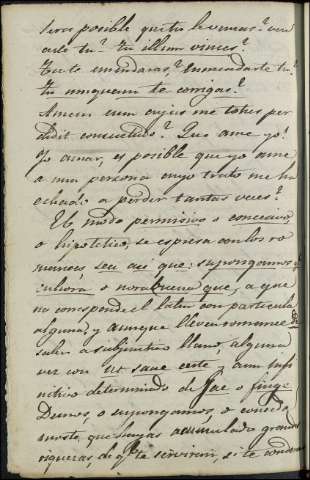 Sera posible que tu le venzas? ven
cele tu? Tu illum vinces?
Tu te enmendaras? Enmendarte tu?
Tu nunquam te corrigas?
Amem eum cujus me toties per
didit consuetudo? Que ame yo?
Yo amar, es posible que yo ame
a una persona cuyo trato me ha
echado a perder tantas veces?
El modo permisivo o concesivo,
o hipotetico, se espresa con los ro
mances, sea asi que: supongamos q.e
o norabuena que, a que
no corresponde el latin con particula
alguna, y aunque lleven romance de
solo a subjuntivo llano, alguna
vez con ut sane certe aun infi
nitivo determinado de fac o finge
Demos, o supongamos, o conceda
mos te, que hayas acumulado grandes
riquezas, de q.e te serviran, si te condenas